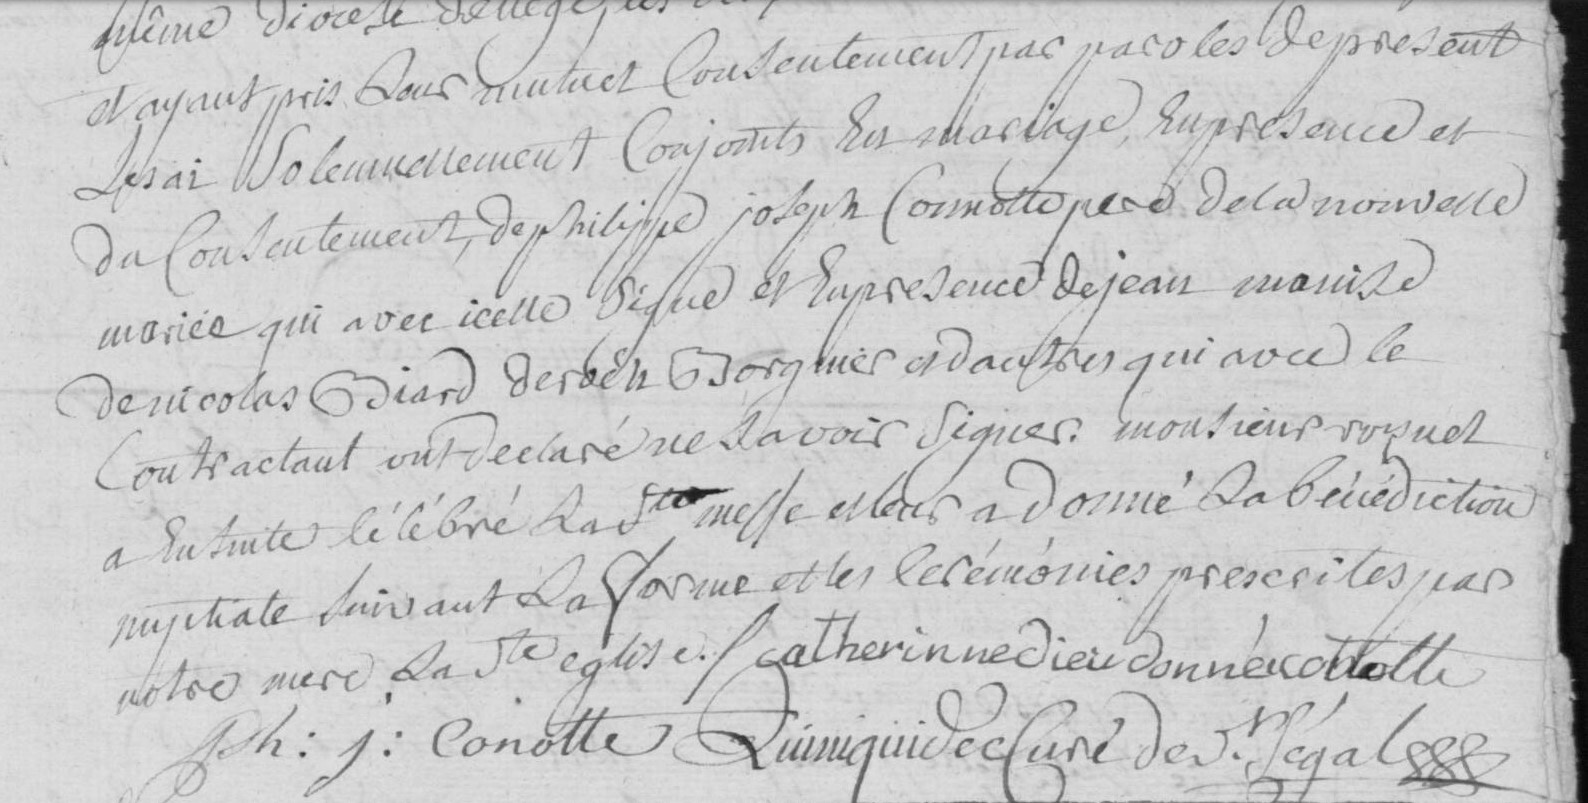 même diocese de liege, les
et ayant pris Leur mutuel Consentement par paroles de present
Les ai Solemnellement Conjoints En mariage, En presence et
du Consentement, de philippe joseph Connotte pere de la nouvelle
mariée qui avec icelle Signe et En presence de jean
de nicolas Biard de Borgnies et dautres qui avec le
Contractant ont declaré ne Savoir Signer. monsieur
a Ensuite Célébré La Ste messe et leur a donné La bénédiction
nuptiale Suivant La forme et les Cerémónies prescrites par
notre mere La Ste eglise. / catherinne dieu donnée conotte
Ph: j: Conotte Quiniquidec Curé de St. Ségal